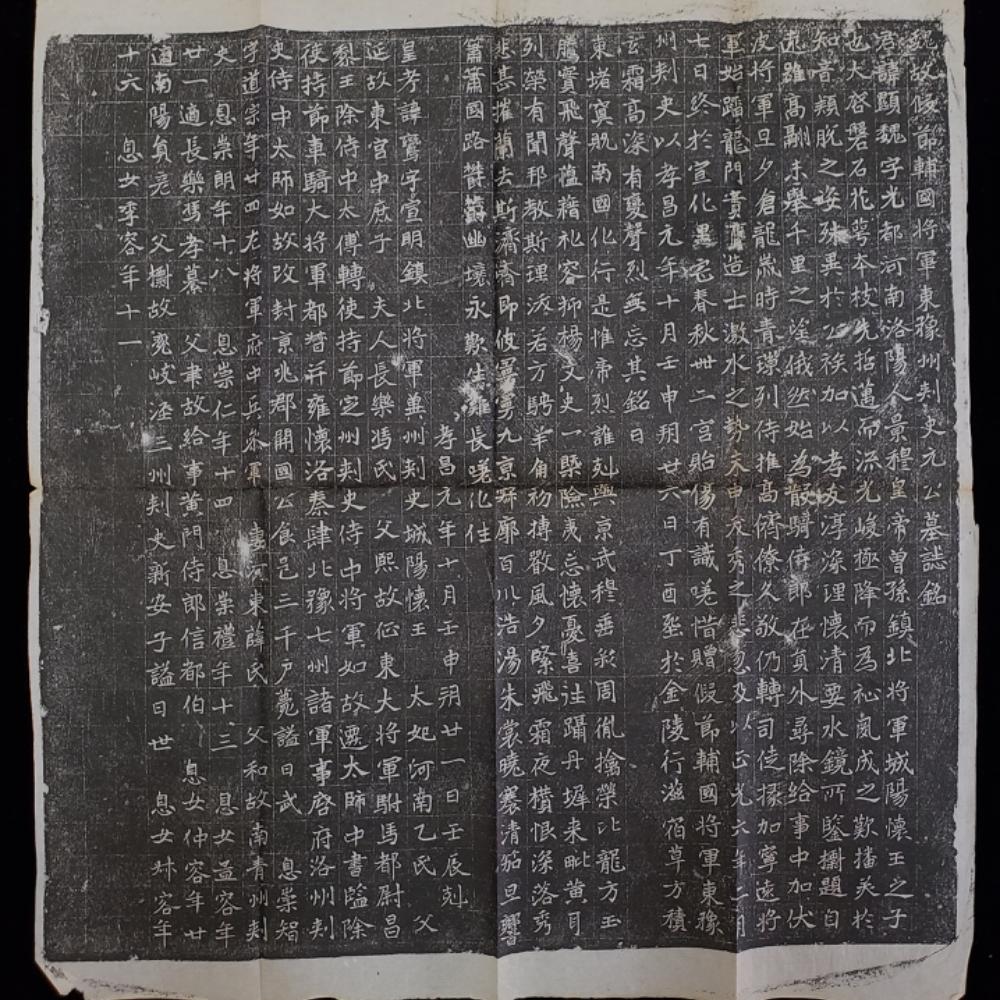 魏故假節輔國將軍東豫州刾史元公墓誌銘
君諱顯魏字光都河南洛陽人景穆皇帝曾孫鎮北將軍城陽懷王之子
也大啓磐石花萼本枝先哲邁而流光峻極降而為祉氣成之歎播美於
知音類脫之姿殊異於公族加以孝友淳深理懷清要水鏡所鑒摛題自
遠雖高翮未舉千里之塗俄然始為散騎侍郎在員外尋除給事中加伏
波將軍旦夕倉龍歲時青璅列侍推高儕僚久敬仍轉司徒掾加寧遠將
軍始躡龍門賁鼖造士激水之勢未申友秀之悲忽及以正光六年二月
七日終於宣化里宅春秋卌二宮貽傷有識嗟惜贈假節輔國將軍東豫
州刾史以孝昌元年十月壬申朔廿六日丁酉窆於金陵行滋宿草方積
玄霜高深有變聲烈無忘其銘曰
東堵寞貺南國化行是惟帝烈誰剋與京武穆垂釆周胤擒榮比龍方玉
騰實飛聲蘊藉礼容抑楊文史一槩險夷忘懷憂喜註躡丹墀来毗黄耳
列榮有聞邦教斯理派若方騁羊角初摶歠風夕緊飛霜夜横恨深洛秀
悲甚摧蘭去斯濟濟即彼寞寞九京寥廓百川浩湯朱裳曉褰清笳旦響
簫簫國路欝欝幽壤永歎生離長嗟化往
孝昌元年十月壬申朔廿一日壬辰剋
皇考諱鸞字宣明鎮北將軍并州刾史城陽懷王 太妃河南乙氏 父
延故東宮中庶子 夫人長樂馮氏 父熙故征東大將軍駙馬都尉昌
黎王除侍中太傅轉使持節定州刾史侍中將軍如故遷太師中書監除
使持節車騎大將軍都督并雍懷洛秦肆北豫七州諸軍事啓府洛州刾
史侍中太師如故改封京兆郡開國公食邑三千户薨謚曰武 息崇智
字道宗年廿四左將軍府中兵參軍 妻河東薛氏 父和故南青州刾
史 息崇朗年十八 息崇仁年十四 息崇禮年十三 息女孟容年
廿一適長樂馮孝纂 父聿故給事黄門侍郎信都伯 息女仲容年廿
適南陽員彦 父標故兗岐涇三州刾史新安子謚曰世 息女叔容年
十六 息女季容年十一